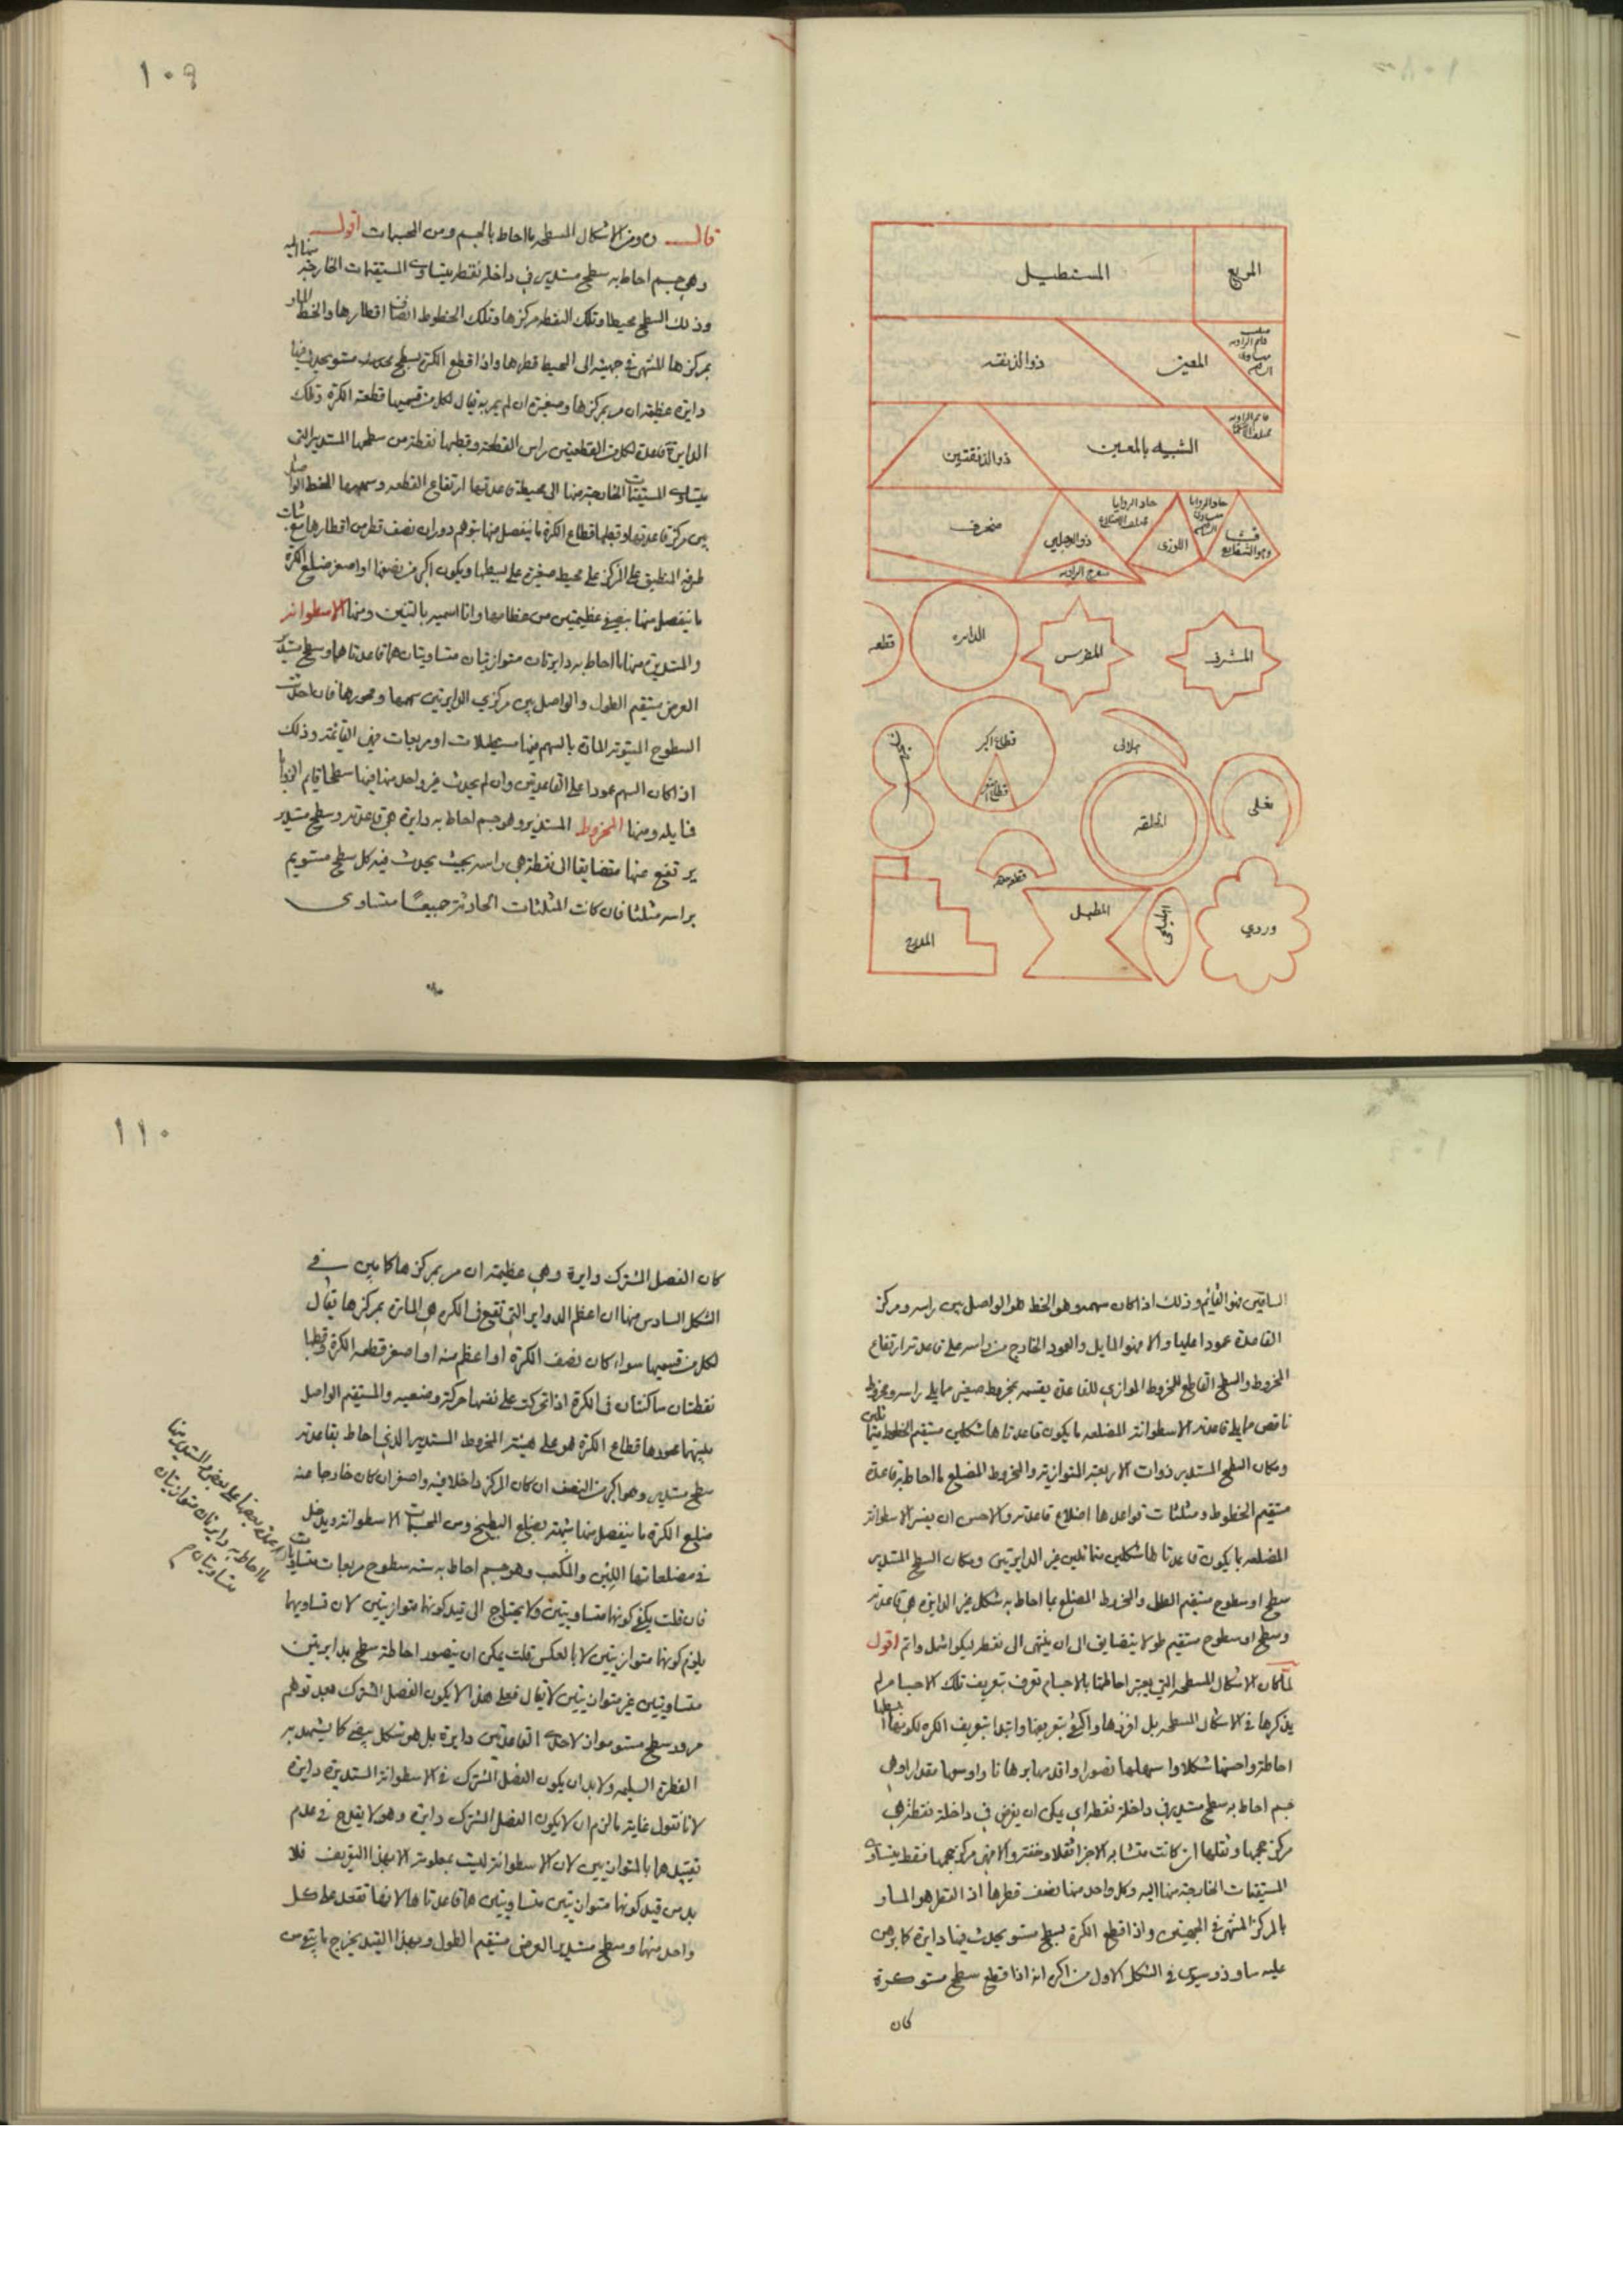 المربع
المستطيل
المعين
ذو الذنقه
قائم الزاويه
الشبيه بالمعين
ذو الذنقتين
حاد الزوايا
حاد الزوايا
مختلف الاضلاع
منحرف
ذو الرجلين
اللوزى
منفرج الزاويه
قطعه
الدايره
المضرس
المشرف
قطاع اكبر
قطاع اصغر
هلالى
نعلى
الحلقه
قطعه حلقه
المدرج
المطبل
وردي
١٠٩
قال ومن الاشكال المسطحه ما احاط بالجسم ومن المجسمات اقول
وهي جسم احاط به سطح مستدير في داخله نقطه يتساوى المستقيمات الخارجة
منها اليه
وذلك السطح محيطها وتلك النقطه مركزها وتلك الخطوط انصاف اقطارها والخط المار
بمركزها المنتهى في جهتيه الى المحيط قطرها واذا قطع الكرة بسطح مستو يحدث فيها
دايرة عظيمة ان مر بمركزها وصغيرة ان لم يمر به يقال لكل من قسميها قطعة الكرة وتلك
الدايرة قاعدة لكل من القطعتين راس القطعة وقطبها نقطة من سطحها المستدير التى
يتساوى المستقيمات الخارجة منها الى محيط قاعدتها ارتفاع القطعه وسهمها الخط الواصل
بين مركز قاعدتها وقطبها قطاع الكرة ما ينفصل منها بتوهم دوران نصف قطر من اقطارها مع ثبات
طرفه المنطبق على المركز على محيط صغيرة على بسيطها ويكون اكبر من نصفها او اصغر ضلع الكرة
ما ينفصل منها بنصفي عظيمتين من عظامها وانا اسميه بالتين ومنها الاسطوانه
والمستديرة منها ما احاط به دايرتان متوازيتان متساويتان هما قاعدتاها وسطح مستدير
العرض مستقيم الطول والواصل بين مركزي الدايرتين سهمها ومحورها فان احدثت
السطوح المستويه المارة بالسهم فيها مستطيلات او مربعات فهي القائمة وذلك
اذا كان السهم عمودا على القاعدتين وان لم يحدث غير واحد منها فيها سطحا قايم الزوايا
فمايله ومنها المخروط المستدير وهو جسم احاط به دايرة هي قاعدته وسطح مستدير
يرتفع منها متضايقا الى نقطة هي راسه بحيث يحدث فيه كل سطح مستو يمر
براسه مثلثا فان كانت المثلثات الحادثة جميعا متساوى
الساقين فهو القايم وذلك اذا كان سهمه وهو الخط هو الواصل بين راسه ومركز
القاعدة عمودا عليها والا فهو المايل والعمود الخارج من راسه على قاعدته ارتفاع
المخروط والسطح القاطع للمخروط الموازي للقاعدة يقسمه بمخروط صغير مما يلي راسه ومخروط
ناقص مما يلي قاعدته الاسطوانة المضلعه ما يكون قاعدتاها شكلين مستقيم الخطوط
ومكان السطح المستدير ذوات الاربعة المتوازية والمخروط المضلع ما احاط به قاعدة
مستقيم الخطوط ومثلثات قواعدها اضلاع قاعدته والاحسن ان يفسر الاسطوانة
المضلعه بما يكون قاعدتاها شكلين متماثلين غير الدايرتين ومكان السطح المستدير
سطح او سطوح مستقيم الطول والمخروط المضلع بما احاط به شكل غير الدايرة هي قاعدته
وسطح او سطوح مستقيم طولا يتضايق الى ان ينتهى الى نقطة ليكون اشمل واتم اقول
لما كان الاشكال المسطحه التي يعتبر احاطتها بالاجسام تعرف بتعريف تلك الاجسام لم
يذكرها في الاشكال المسطحه بل افرزها واكتفى بتعريفها وابتدا بتعريف الكره لكونها ابسطها
احاطة واحسنها شكلا واسهلها تصورا واقدمها برهانا واوسعها مقدارا وهي
جسم احاط به سطح مستدير في داخله نقطه اي يمكن ان يفرض في داخله نقطة هي
مركز حجمها وثقلها ان كانت متشابه الاجزا ثقلا وخفة والا فهى مركز حجمها فقط يتساوى
المستقيمات الخارجة منها اليه وكل واحد منها نصف قطرها اذ القطر هو المار
بالمركز المنتهى في الجهتين واذا قطع الكرة بسطح مستو يحدث فيها دايرة كما برهن
عليه ثاوذوسيوس في الشكل الاول من اكره انه اذا قطع سطح مستو كرة
كان
١١٠
كان الفصل المشترك دايرة وهي عظيمة ان مر بمركزها كما بين في
الشكل السادس منها ان اعظم الدواير التي تقع في الكره هي المارة بمركزها يقال
لكل من قسميها سواء كان نصف الكرة او اعظم منه او اصغر قطعه الكرة وقطبا
نقطتان ساكنتان في الكرة اذا تحركت على نفسها حركة وضعيه والمستقيم الواصل
بينهما محورها قطاع الكرة هو على هيئة المخروط المستدير الذي احاط بقاعدته
سطح مستدير وهو اكبر من النصف ان كان المركز داخلا فيه واصغر ان كان خارجا عنه
ضلع الكرة ما ينفصل منها شبيها بضلع البطيخ ومن المجسمات الاسطوانة ويدخل
في مضلعاتها اللبن والمكعب وهو جسم احاط به سته سطوح مربعات متساويات
فان قلت يكفي كونهما متساويتين ولا يحتاج الى قيد كونهما متوازيتين لان تساويهما
يلزم كونهما متوازيتين لا بالعكس قلت يمكن ان يتصور احاطة سطح بدايرتين
متساويتين غير متوازيتين لا يقال فعلى هذا لا يكون الفصل المشترك بعد توهم
مرور سطح مستو مواز لاحدى القاعدتين دايرة بل هو شكل بيضي كما يشهد به
الفطرة السليمه ولا بد ان يكون الفصل المشترك في الاسطوانة المستديرة دايرة
لانا نقول غاية ما لزم ان لا يكون الفصل المشترك دايرة وهو لا يقدح في عدم
تقييدها بالمتوازيين لان الاسطوانة ليست بمعلومة الا بهذا التعريف فلا
بد من قيد كونهما متوازيتين متساويتين هما قاعدتاها لانها تقعد على كل
واحد منهما وسطح مستدير العرض مستقيم الطول وبهذا القيد يخرج ما يتقوس
ما احاط به دايرتان متوازيتان
متساويتان